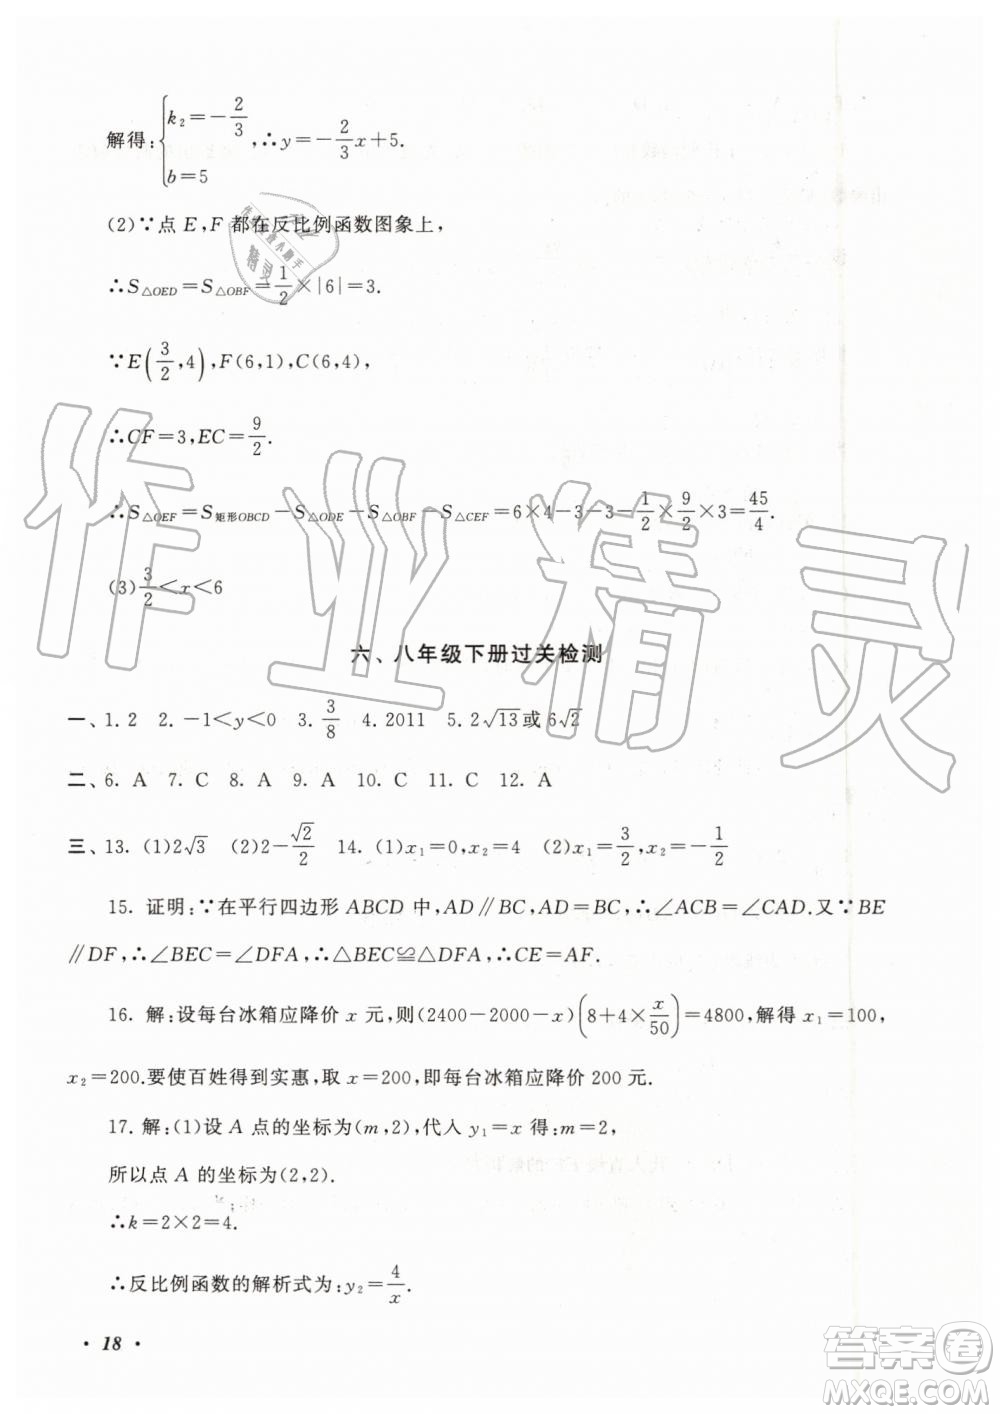 解得:{k₂=-2/3, b=5 ,∴y=-2/3x+5.
(2)∵点 E,F 都在反比例函数图象上,
∴S△OED=S△OBF=1/2×|6|=3.
∵E(3/2,4),F(6,1),C(6,4),
∴CF=3,EC=9/2.
∴S△OEF=S矩形OBCD-S△ODE-S△OBF-S△CEF=6×4-3-3-1/2×9/2×3=45/4.
(3)3/2<x<6
六、八年级下册过关检测
一、1.2 2.-1<y<0 3.3/8 4.2011 5.2√13或6√2
二、6. A 7. C 8. A 9. A 10. C 11. C 12. A
三、13. (1)2√3 (2)2-√2/2 14. (1)x₁=0,x₂=4 (2)x₁=3/2,x₂=-1/2
15. 证明:∵在平行四边形 ABCD 中,AD∥BC,AD=BC,∴∠ACB=∠CAD.又∵BE
∥DF,∴∠BEC=∠DFA,∴△BEC≌△DFA,∴CE=AF.
16. 解:设每台冰箱应降价 x 元,则(2400-2000-x)(8+4×x/50)=4800,解得 x₁=100,
x₂=200.要使百姓得到实惠,取 x=200,即每台冰箱应降价 200 元.
17. 解:(1)设 A 点的坐标为(m,2),代入 y₁=x 得:m=2,
所以点 A 的坐标为(2,2).
∴k=2×2=4.
∴反比例函数的解析式为:y₂=4/x.
· 18 ·
作业精灵
答案卷
MXQE.COM